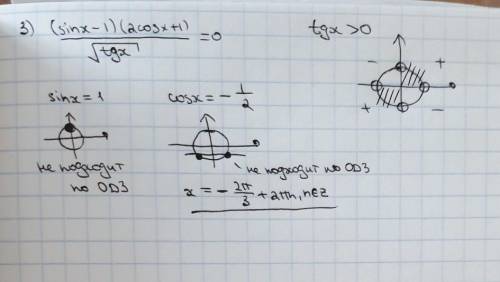 3) (sinx-1)(2cosx+1) / √tgx = 0
tgx>0
- +
+ -
sinx=1
cosx=-1/2
не подходит
по ОДЗ
не подходит по ОДЗ
x = -2π/3 + 2πn, n∈z